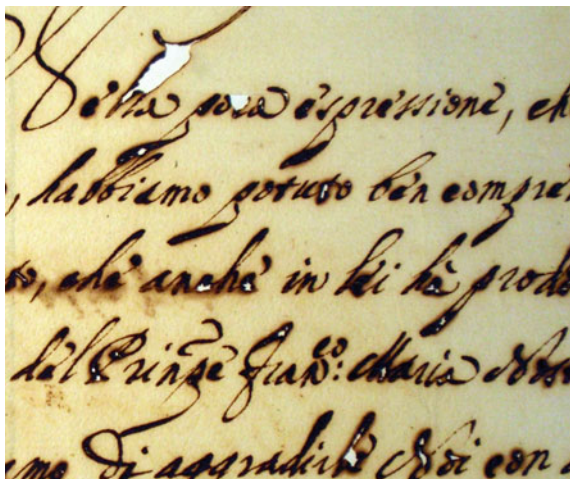 Della poca espressione, ch
habbiamo potuto ben compre
che anche in lei hà prod
del Prinpe Franco: Maria Nos
di aggradirle Noi con